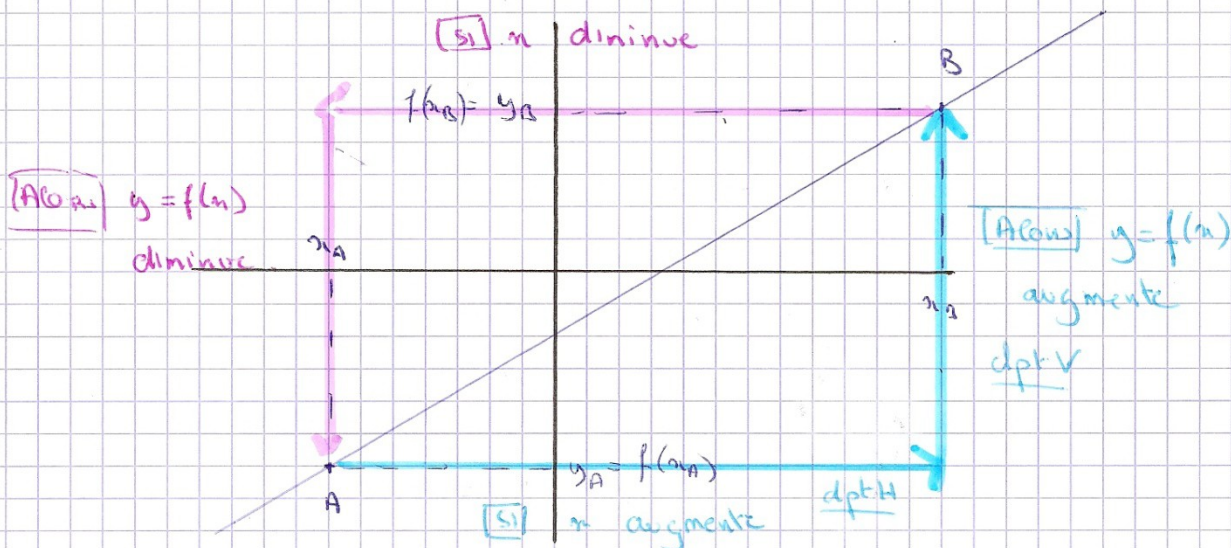 [SI] x diminue
B
f(x_B) = y_B
[Alors] y = f(x)
diminue
x_A
[Alors] y = f(x)
augmente
x_B
dptV
y_A = f(x_A)
A
dptH
[SI] x augmente